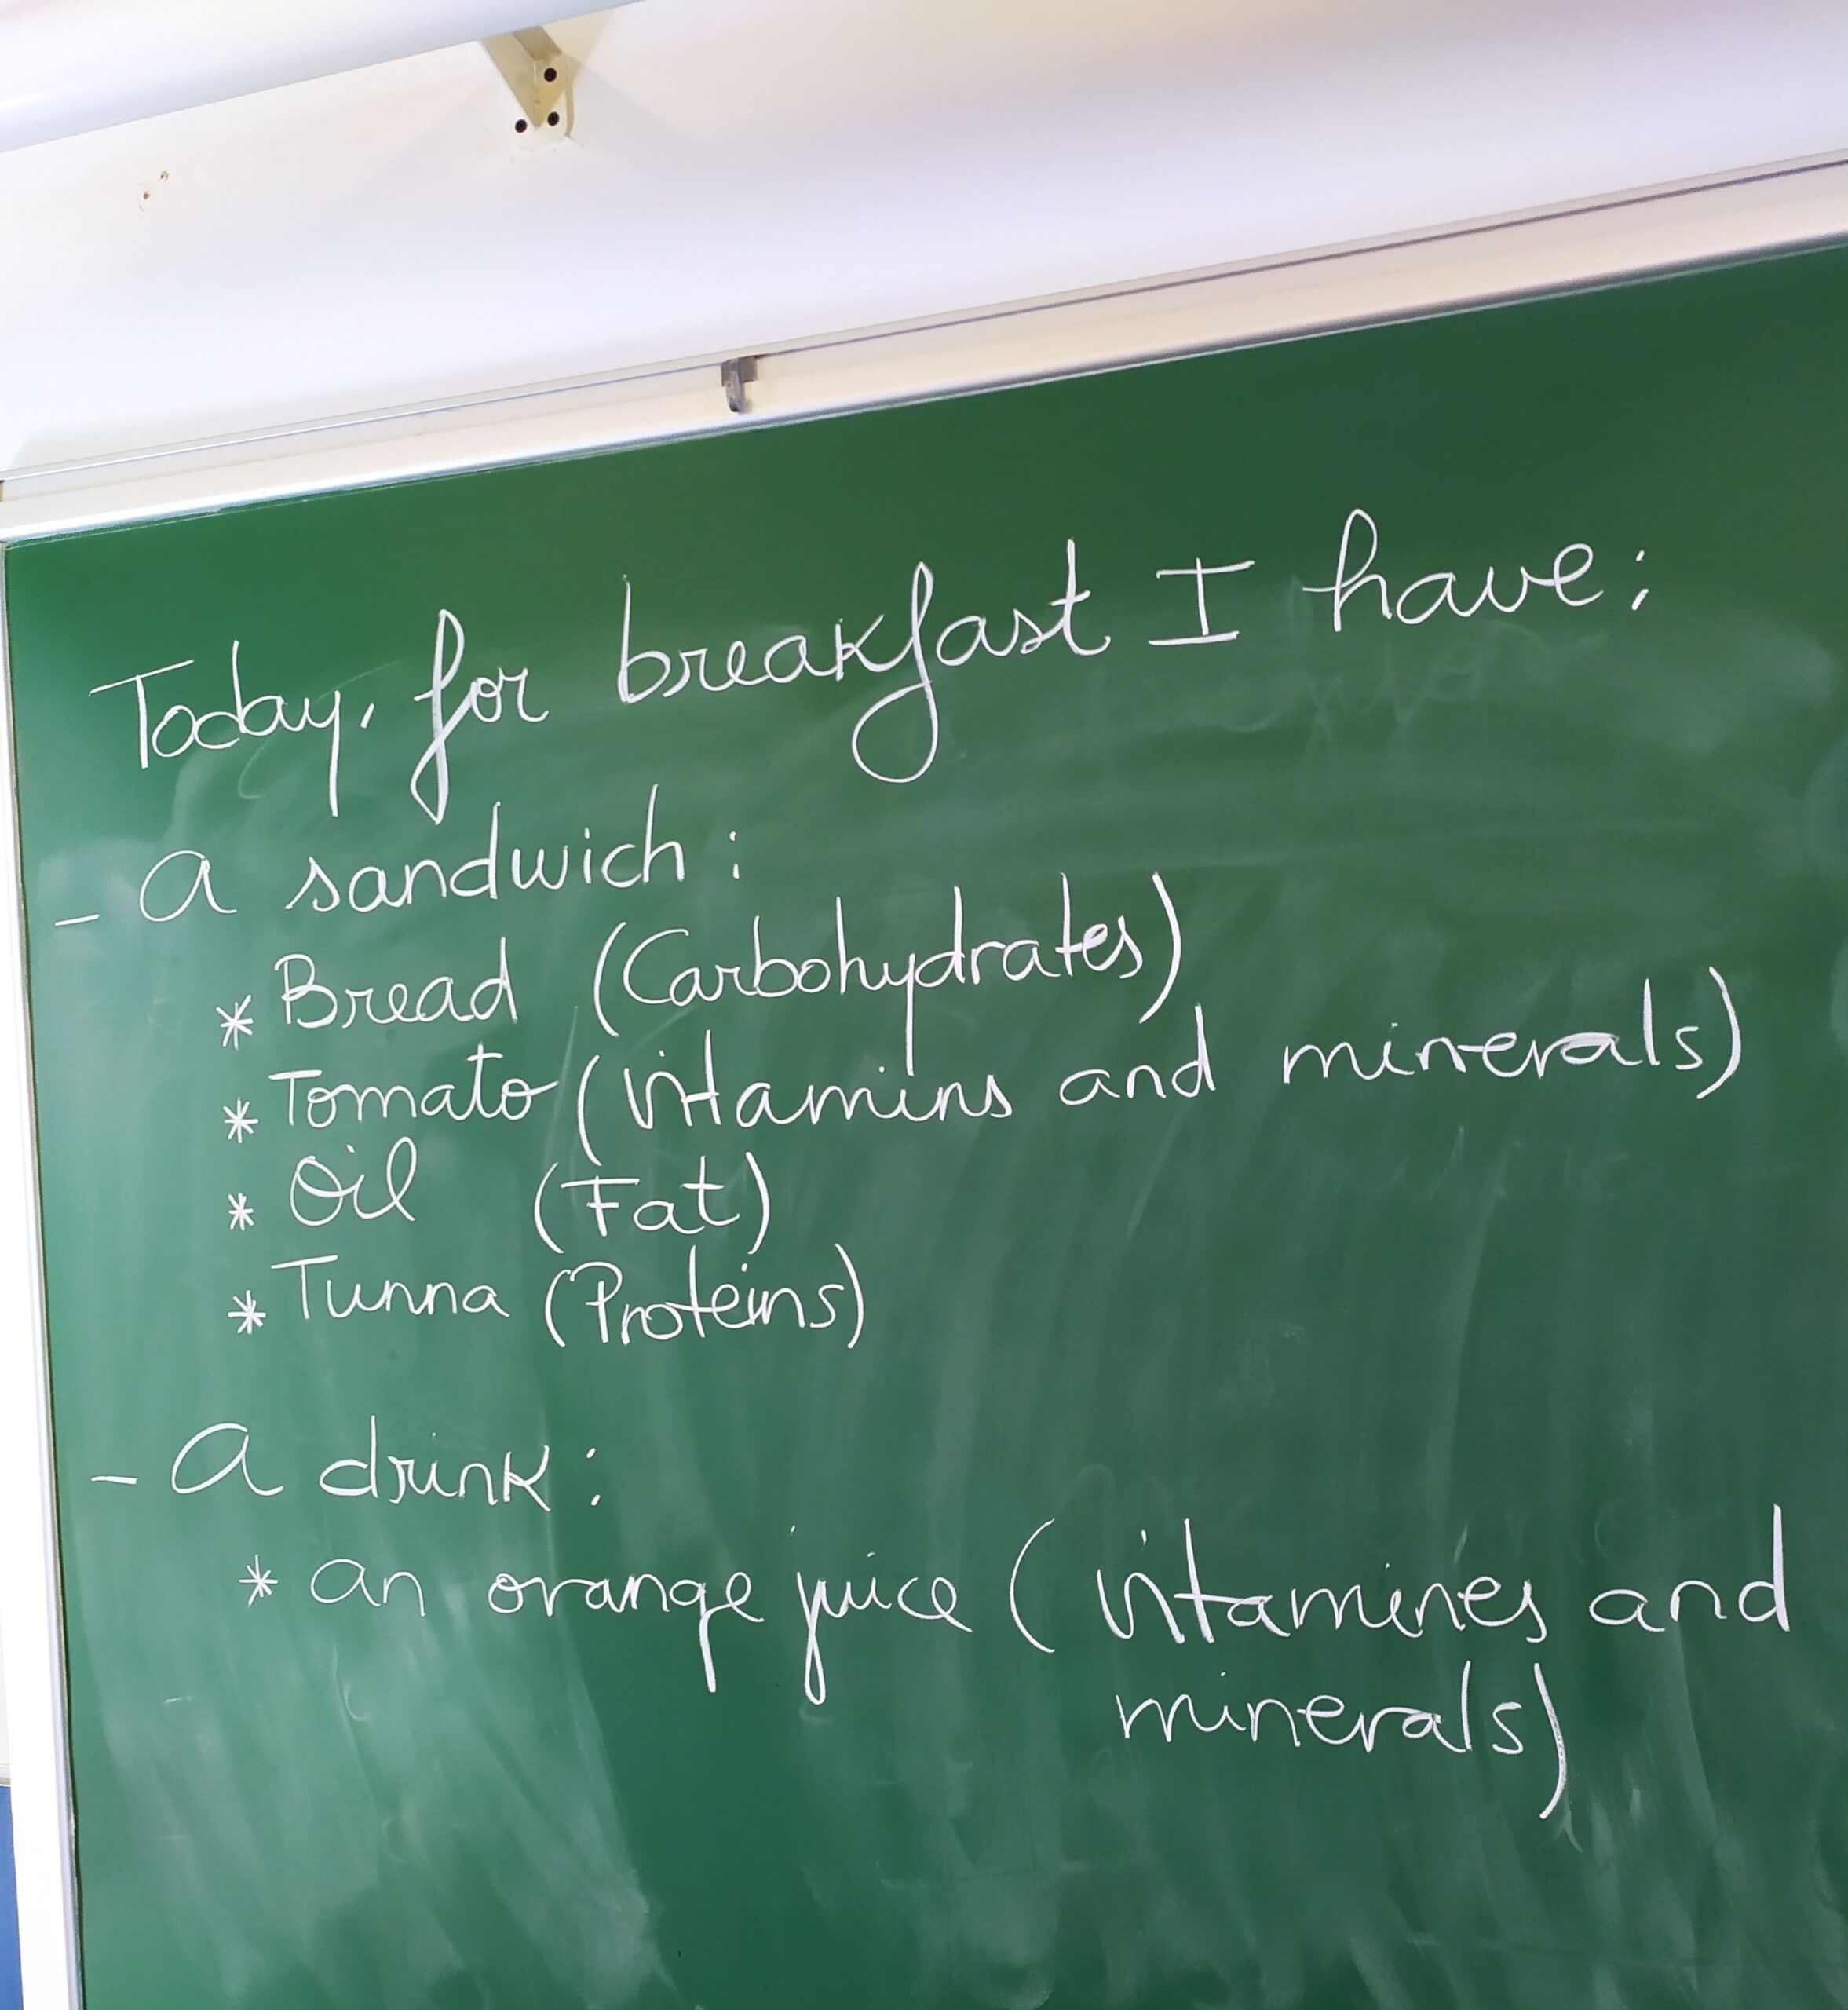 Today, for breakfast I have:
- A sandwich:
* Bread (Carbohydrates)
* Tomato (Vitamins and minerals)
* Oil (Fat)
* Tunna (Proteins)
- A drink:
* an orange juice (Vitamines and
minerals)